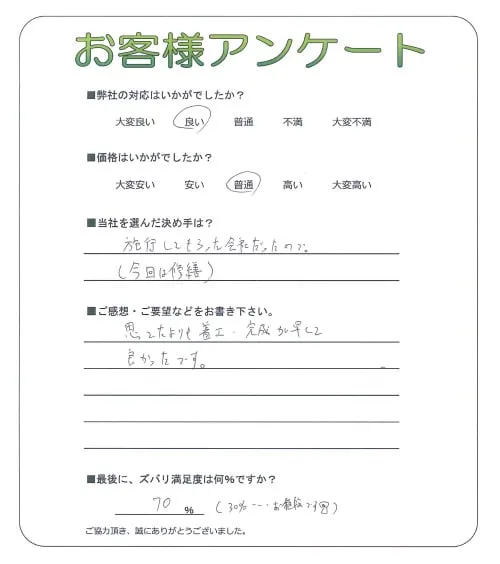 お客様アンケート
■弊社の対応はいかがでしたか？
大変良い 良い 普通 不満 大変不満
■価格はいかがでしたか？
大変安い 安い 普通 高い 大変高い
■当社を選んだ決め手は？
施行してもらった会社だったので。
(今回は修繕)
■ご感想・ご要望などをお書き下さい。
思ってたよりも着工・完成が早くて
良かったです。
■最後に、ズバリ満足度は何％ですか？
70 % (30% ---・お値段です)
ご協力頂き、誠にありがとうございました。